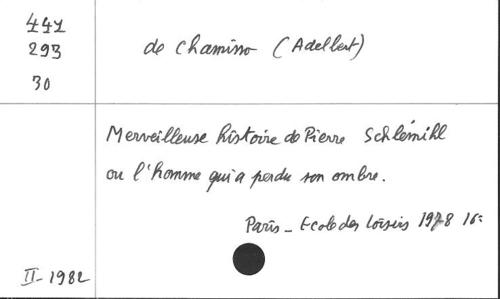 441
293
30
de Chamisso (Adelbert)
Merveilleuse histoire de Pierre Schlémihl
ou l'homme qui a perdu son ombre.
Paris _ Ecole des loisirs 1978 16=
II-1982